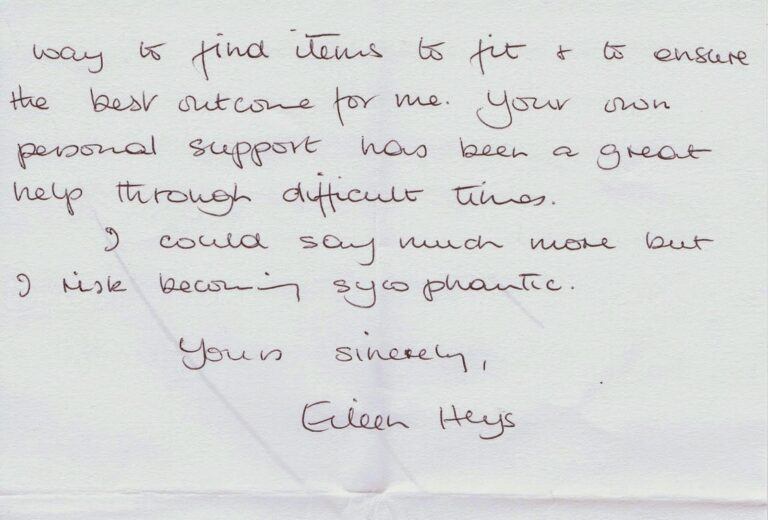 way to find items to fit & to ensure
the best outcome for me. Your own
personal support has been a great
help through difficult times.
I could say much more but
I risk becoming sycophantic.
Yours sincerely,
Eileen Heys